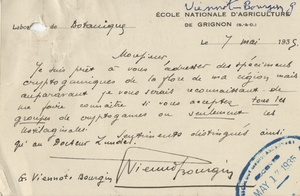 Viennot-Bourgin G
ÉCOLE NATIONALE D'AGRICULTURE
DE GRIGNON (S.-&-O.)
Labor de Botanique
Le 7 mai 1935
Monsieur,
Je suis prêt à vous adresser des spécimens
cryptogamiques de la flore de ma région mais
auparavant je vous serais reconnaissant de
me faire connaître si vous acceptez tous les
groupes de cryptogames ou seulement les
Ustilaginales.
Sentiments distingués ainsi
qu'au Docteur Zundel.
G. Viennot-Bourgin
Viennot Bourgin
MAY 17 1935